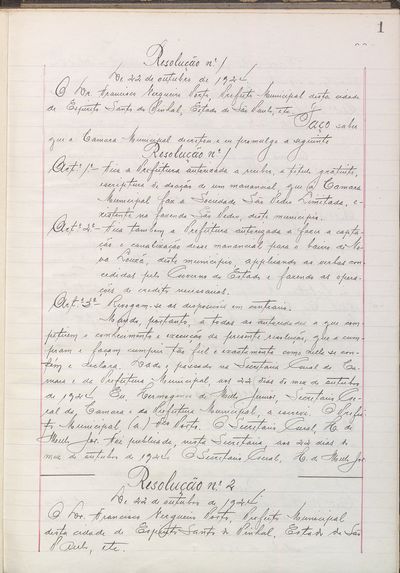 1
Resolução nº 1
De 22 de outubro de 1924
O Dr. Francisco Vergueiro Porto, Prefeito Municipal desta cidade
de Espirito Santo do Pinhal, Estado de São Paulo, etc.
Faço saber
que a Camara Municipal decretou e eu promulgo a seguinte
Resolução nº 1
Art.º 1º - Fica a Prefeitura autorisada a receber, a titulo gratuito,
escriptura de doação de um manancial, que á Camara
Municipal faz a Sociedade São Pedro Limitada, e-
xistente na fazenda São Pedro, deste municipio.
Art.º 2º - Fica tambem a Prefeitura autorizada a fazer a capta-
ção e canalização desse manancial para o bairro de No-
va Louzã, deste municipio, applicando as verbas con-
cedidas pelo Governo do Estado e fazendo as opera-
ções de credito necessarias.
Art.º 3º - Revogam-se as disposições em contrario.
Mando, portanto, a todas as autoridades a que com-
petirem o conhecimento e execução da presente resolução, que a cum-
pram e façam cumprir tão fiel e exactamente como nella se con-
tém e declara. Dada e passada na Secretaria Geral da Ca-
mara e da Prefeitura Municipal, aos 22 dias do mez de outubro
de 1924. Eu, Hermogenes de Mello Junior, Secretario Ge-
ral da Camara e da Prefeitura Municipal, a escrevi. O Prefei-
to Municipal (a.) Porto. O Secretario Geral, H. de
Mello Jor. Foi publicada, nesta Secretaria, aos 22 dias do
mez de outubro de 1924. O Secretario Geral, H. de Mello Jor.
Resolução nº 2
De 22 de outubro de 1924
O Dr. Francisco Vergueiro Porto, Prefeito Municipal
desta cidade de Espirito Santo do Pinhal, Estado de São
Paulo, etc.